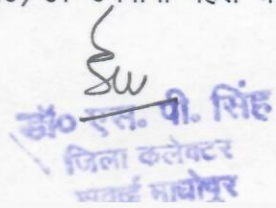 डॉ० एस. पी. सिंह
जिला कलेक्टर
सवाई माधोपुर